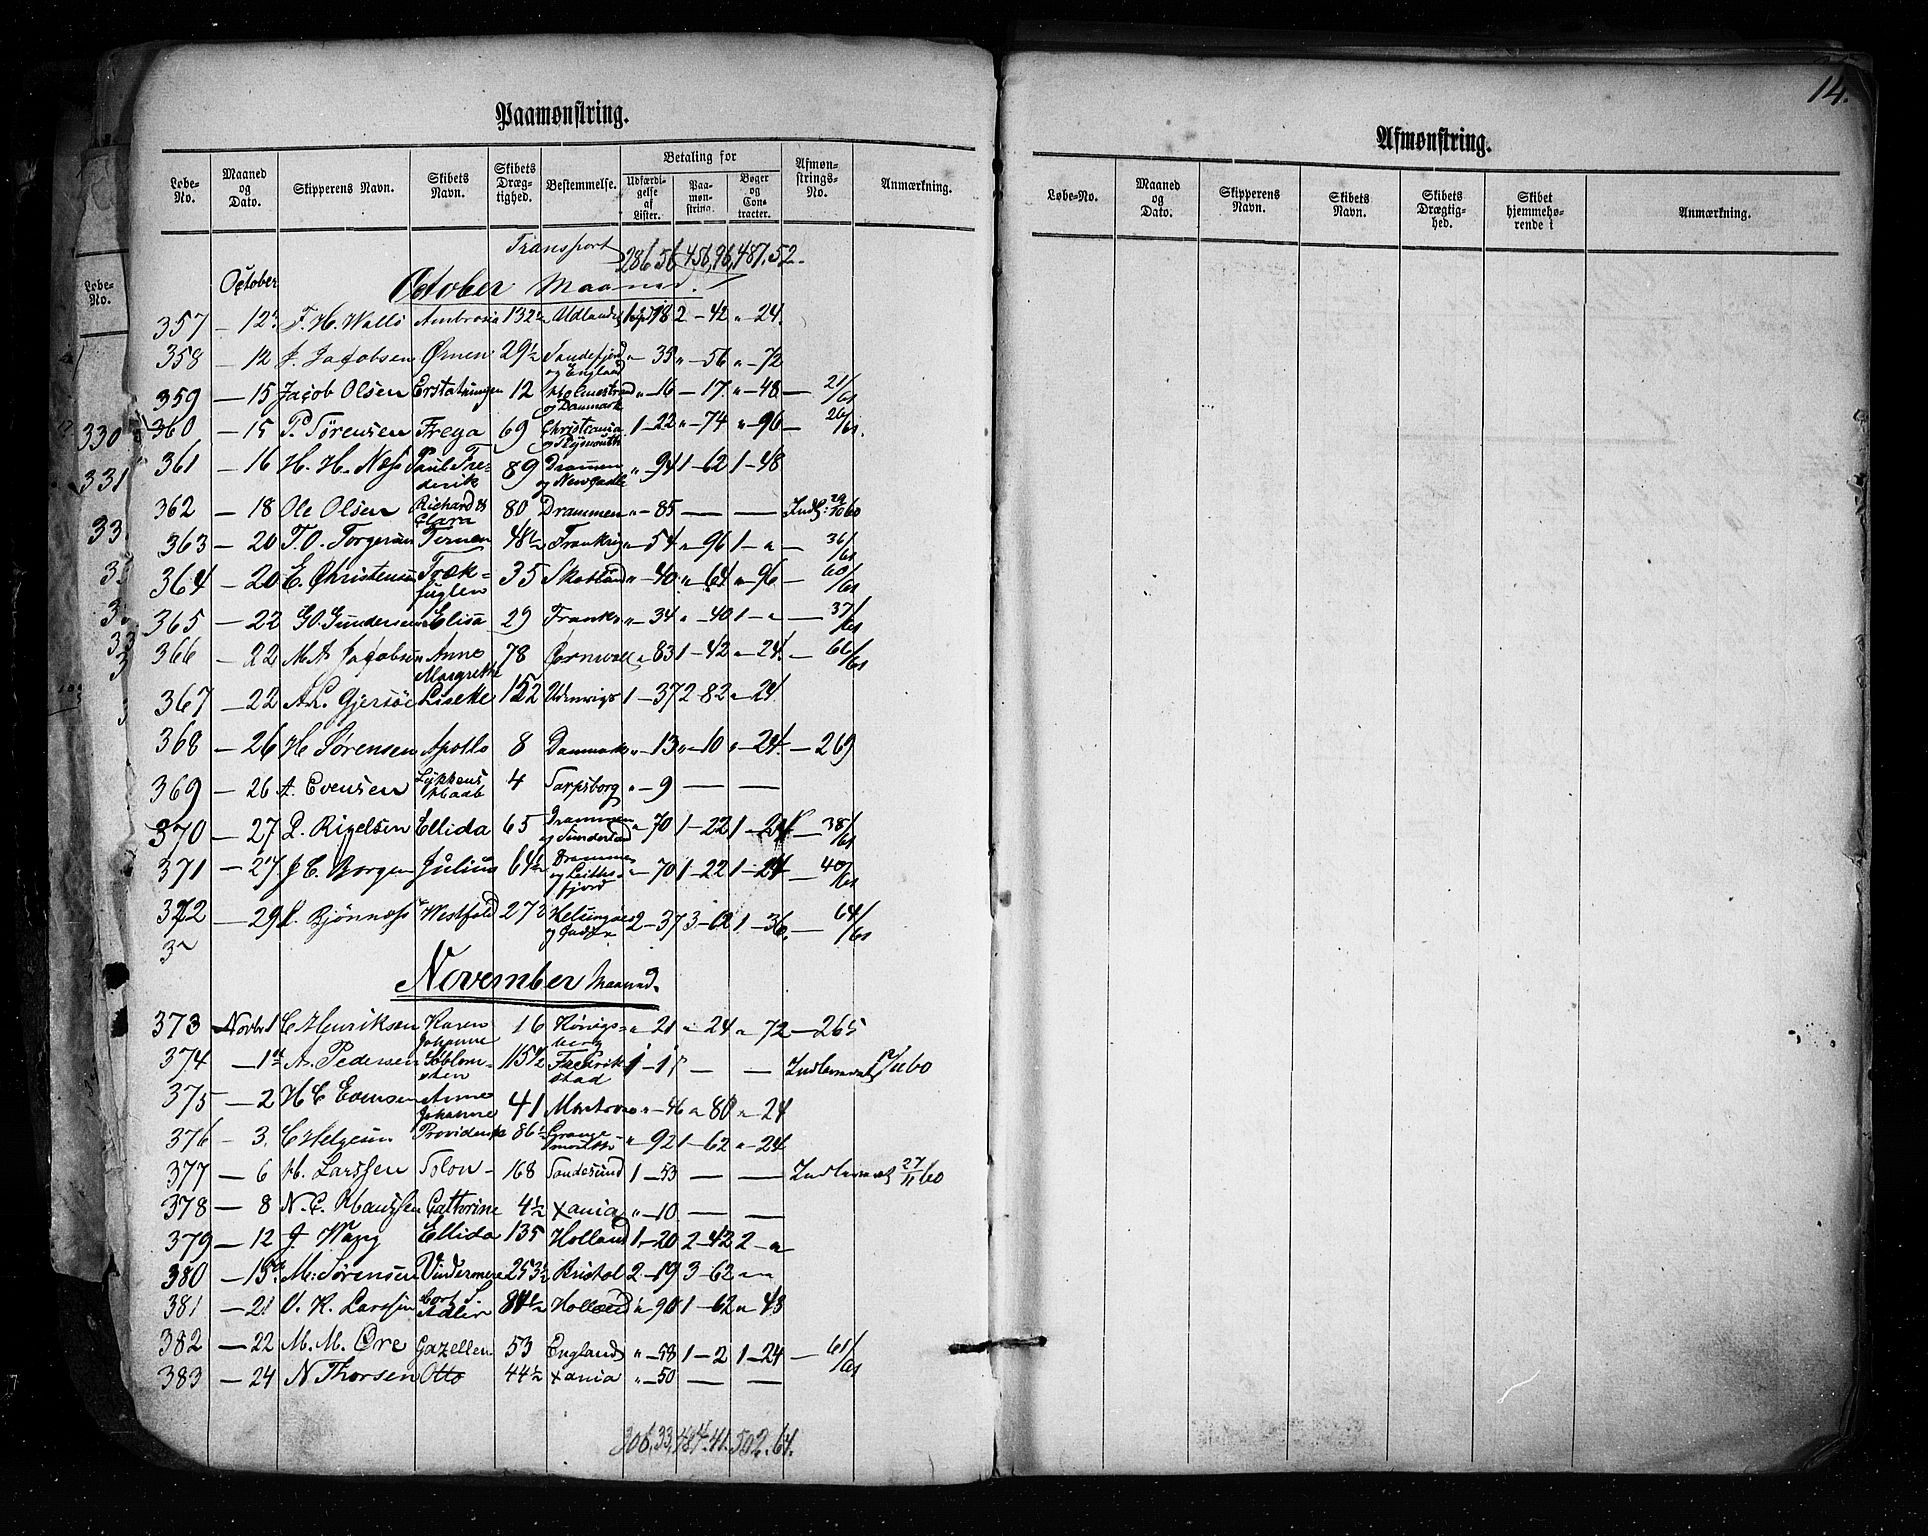 14.
Paamønstring.
Løbe-No. Maaned og Dato. Skipperens Navn. Skibets Navn. Skibets Dræg-tighed. Bestemmelse. Betaling for Udfærdi-gelse af Lister. Paa-møn-string. Bøger og Con-tracter. Afmøn-strings-No. Anmærkning.
Transport 286 56 456,96, 487.52.
October
October Maaned.
357 — 12 F. H. Wallö Ambrosia 132½ Udlandet 2 — 42 " 24.
358 — 12 J. Jacobsen Ørnen 29½ Sandefjord og England " — 35 " — 56 " — 72
359 — 15 Jacob Olsen Erstatningen 12 Holmestrand og Danmark " — 16 — 17 " — 48 — 21/61
360 — 15 P. Sørensen Freya 69 Christiania og Plÿmouth 1 — 22 " — 74 " — 96 — 26/61.
361 — 16 H. H. Næss Paul Fre-derik 89 Drammen og Newcastle " — 94 1 — 62 1 — 48
362 — 18 Ole Olsen Richard & Clara 80 Drammen " — 85 — — Indl. 29/10 60
363 — 20 T. O. Torgersen Ternen 48½ Frankrig " — 54 " — 96 1 — " — 36/61
364 — 20 E. Christensen Træk-fuglen 35 Skotland " — 40 " — 64 " — 96 — 60/61
365 — 22 G. O. Gundersen Elisa 29 Frankr " — 34 " — 40 1 — " — 37/61
366 — 22 M A Jacobsen Anne Margrethe 78 Cornwall " 83 1 — 42 " — 24. — 66/61
367 — 22 A. L. Gjersöe Liseke 152 Udenrigs 1 — 37 2 — 82 " — 24
368 — 26 H Sørensen Apollo 8 Danmark " — 13 " — 10 " — 24. — 269
369 — 26 A. Evensen Lykkens Haab 4 Sarpsborg " — 9 — —
370 — 27 L. Rigelsen Ellida 65 Drammen og Sunderland " 70 1 — 22 1 — 24 — 38/61
371 — 27 J C. Borgen Julius 64½ Drammen og Leiths-fjord " — 70 1 — 22 1 — 24 — 40/61
372 — 29 L. Bjønnæss Westfold 272 Helsingöer og 2 — 37 3 — 62 1 — 36. — 64/61
3
November Maaned.
373 — Novbr 1 C Henriksen Karen Johanne 16 Königs-berg " 21 " — 24 " 72 — 265
374 — 1st A. Pedersen Söblom-sten 115½ Fredrik-stad 1 — 17 — — Indleveret 12/11 60
375 — 2 H C Evensen Anne Johanne 41 Montrose " — 46 " 80 " — 24
376 — 3. C Helgesen Providentia 86½ Grange-mouth " — 92 1 — 62 " — 24
377 — 6 H. Larssen Solon — 168 Sandesund 1 — 53 — — Indleveret 27/11 60
378 — 8 N. C. Hanssen Cathrine 4½ Xania " — 10. — —
379 — 12 J Wang Ellida 135 Holland 1. — 20 2 — 42 2 — "
380 — 15. M. Sørensen Vindermere 253½ Bristol 2 — 19 3 — 62 " — "
381 — 21 O. K. Larssen Cort S. Adler 84½ Holland " — 90 1 — 62 " — 48
382 — 22 M. M. Øre Gazellen 53 England " — 58 1 — 2 1 — 24 — 61/61
383 — 24 N Thorsen Otto 44½ Xania " — 50 — —
306,33, 484.41. 502.64.
330
331
33
Løbe-No.
Afmønstring.
Løbe-No. Maaned og Dato. Skipperens Navn. Skibets Navn. Skibets Drægtig-hed. Skibet hjemmehø-rende i Anmærkning.